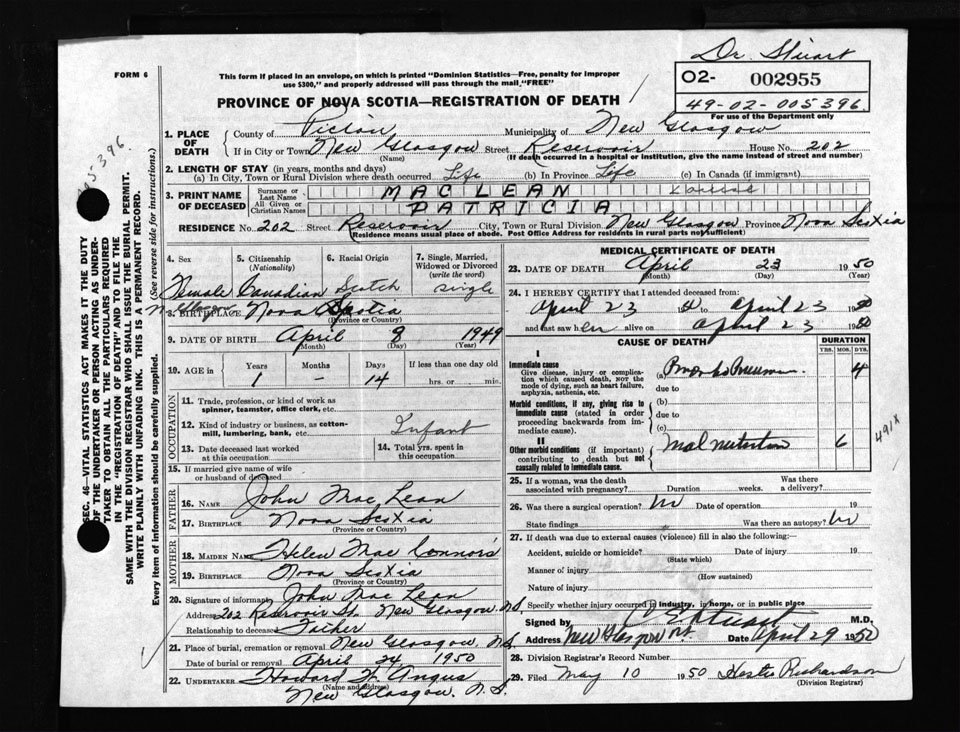 Dr. Stuart
FORM 6
This form if placed in an envelope, on which is printed "Dominion Statistics—Free, penalty for improper
use $300," and properly addressed will pass through the mail "FREE"
O2- 002955
49-02-005396
For use of the Department only
PROVINCE OF NOVA SCOTIA—REGISTRATION OF DEATH
1. PLACE OF DEATH County of Pictou Municipality of New Glasgow
If in City or Town New Glasgow Street Reservoir House No. 202
(Name) (If death occurred in a hospital or institution, give the name instead of street and number)
2. LENGTH OF STAY (in years, months and days)
(a) In City, Town or Rural Division where death occurred Life (b) In Province Life (c) In Canada (if immigrant)
3. PRINT NAME OF DECEASED Surname or Last Name MACLEAN
All Given or Christian Names PATRICIA
RESIDENCE No. 202 Street Reservoir City, Town or Rural Division New Glasgow Province Nova Scotia
(Residence means usual place of abode. Post Office Address for residents in rural parts not sufficient)
4. Sex 5. Citizenship (Nationality) 6. Racial Origin 7. Single, Married, Widowed or Divorced (write the word)
Female Canadian Scotch single
8. BIRTHPLACE N Glasgow Nova Scotia
(Province or Country)
9. DATE OF BIRTH April 8 1949
(Month) (Day) (Year)
10. AGE in Years Months Days If less than one day old
1 - 14 hrs. or min.
OCCUPATION
11. Trade, profession, or kind of work as
spinner, teamster, office clerk, etc.
12. Kind of industry or business, as cotton-
mill, lumbering, bank, etc. Infant
13. Date deceased last worked at this occupation 14. Total yrs. spent in this occupation
15. If married give name of wife
or husband of deceased
FATHER
16. NAME John MacLean
17. BIRTHPLACE Nova Scotia
(Province or Country)
MOTHER
18. MAIDEN NAME Helen Mac Connors
19. BIRTHPLACE Nova Scotia
(Province or Country)
20. Signature of informant John MacLean
Address 202 Reservoir St. New Glasgow. N.S.
Relationship to deceased Father
21. Place of burial, cremation or removal New Glasgow. N.S.
Date of burial or removal April 24 1950
22. UNDERTAKER Howard W. Angus
(Name and address)
New Glasgow. N.S.
MEDICAL CERTIFICATE OF DEATH
23. DATE OF DEATH April 23 1950
(Month) (Day) (Year)
24. I HEREBY CERTIFY that I attended deceased from:
April 23 to April 23 1950
and last saw her alive on April 23 1950
CAUSE OF DEATH DURATION
YRS. MOS. DYS.
I
Immediate cause
Give disease, injury or complica-
tion which caused death, not the
mode of dying, such as heart failure,
asphyxia, asthenia, etc.
(a) 4
due to
Morbid conditions, if any, giving rise to
immediate cause (stated in order
proceeding backwards from im-
mediate cause).
(b)
due to
(c)
II
Other morbid conditions (if important)
contributing to death but not
causally related to immediate cause.
Malnutrition 6
491X
25. If a woman, was the death
associated with pregnancy? Duration weeks. Was there a delivery?
26. Was there a surgical operation? No Date of operation 19
State findings Was there an autopsy? No
27. If death was due to external causes (violence) fill in also the following:—
Accident, suicide or homicide? Date of injury 19
(State which)
Manner of injury
(How sustained)
Nature of injury
Specify whether injury occurred in industry, in home, or in public place
Signed by M.D.
Address New Glasgow NS. Date April 29 1950
28. Division Registrar's Record Number
29. Filed May 10 1950 Richardson
(Division Registrar)
SEC. 46—VITAL STATISTICS ACT MAKES IT THE DUTY
OF THE UNDERTAKER OR PERSON ACTING AS UNDER-
TAKER TO OBTAIN ALL THE PARTICULARS REQUIRED
IN THE "REGISTRATION OF DEATH" AND TO FILE THE
SAME WITH THE DIVISION REGISTRAR WHO SHALL ISSUE THE BURIAL PERMIT.
WRITE PLAINLY WITH UNFADING INK. THIS IS A PERMANENT RECORD.
Every item of information should be carefully supplied. (See reverse side for instructions.)
05396